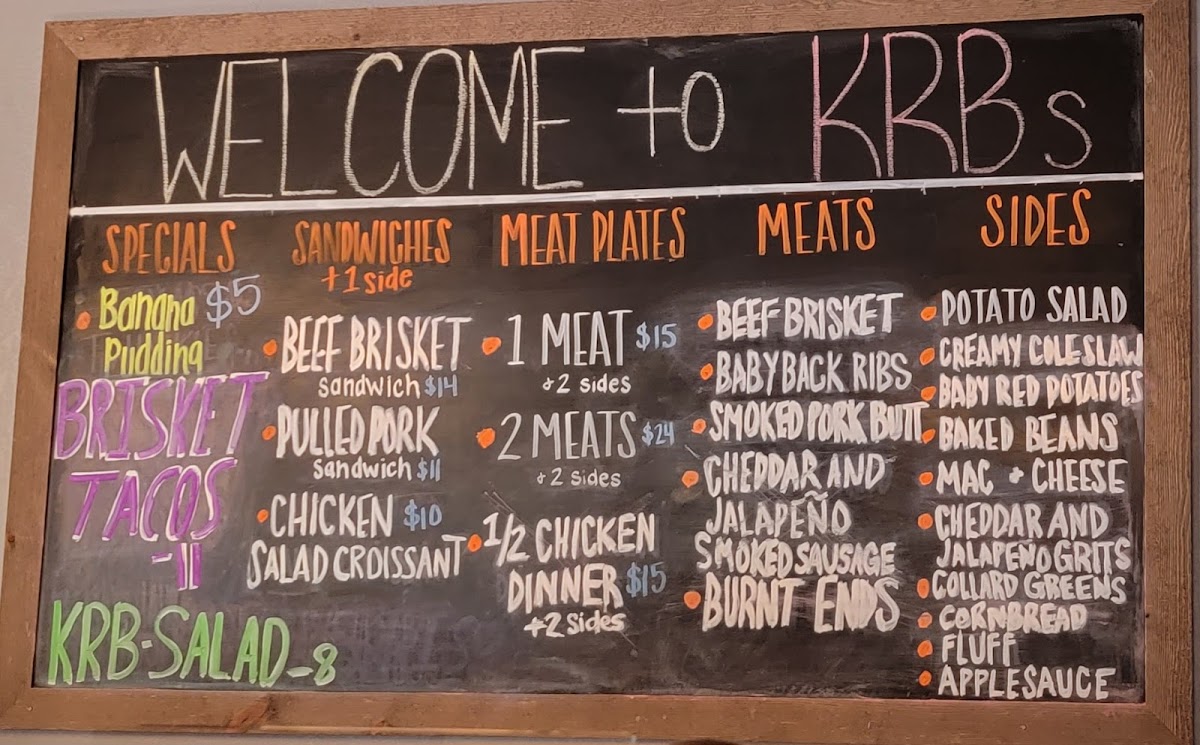 WELCOME to KRBs
SPECIALS
Banana $5
Pudding
BRISKET
TACOS
-11
KRB-SALAD-8
SANDWICHES
+1 side
BEEF BRISKET
sandwich $14
PULLED PORK
sandwich $11
CHICKEN $10
SALAD CROISSANT
MEAT PLATES
1 MEAT $15
+2 sides
2 MEATS $24
+2 sides
1/2 CHICKEN
DINNER $15
+2 sides
MEATS
BEEF BRISKET
BABY BACK RIBS
SMOKED PORK BUTT
CHEDDAR AND
JALAPEÑO
SMOKED SAUSAGE
BURNT ENDS
SIDES
POTATO SALAD
CREAMY COLESLAW
BABY RED POTATOES
BAKED BEANS
MAC + CHEESE
CHEDDAR AND
JALAPEÑO GRITS
COLLARD GREENS
CORNBREAD
FLUFF
APPLESAUCE